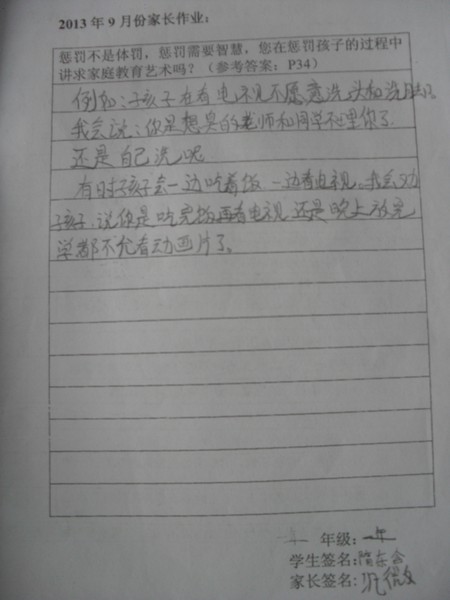 2013 年 9 月份家长作业：
惩罚不是体罚，惩罚需要智慧，您在惩罚孩子的过程中
讲求家庭教育艺术吗？（参考答案：P34）
例如：孩子在看电视不愿意洗头和洗脚，
我会说：你是想臭的老师和同学不理你了
还是自己洗呢
有时孩子会一边吃着饭 一边看电视，我会劝
孩子，说你是吃完饭再看电视 还是晚上放完
学都不允看动画片了。
年级：一年
学生签名：
家长签名：